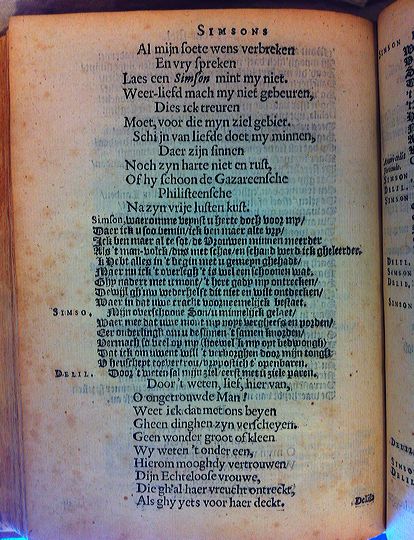 SIMSONS
Al mijn soete wens verbreken
En vry spreken
Laes een Simson mint my niet.
Weer-liefd mach my niet gebeuren,
Dies ick treuren
Moet, voor die myn ziel gebier.
Schijn van liefde doet my minnen,
Daer zijn sinnen
Noch zyn harte niet en rust,
Of hy schoon de Gazareensche
Philisteensche
Na zyn vrije lusten kust.
Simson, waeromme veynst u herte doch voor my/
Waer ick u soo bemin/ ick ben maer alte vry/
Ick ben maer al te sot/ de Vrouwen minnen meerder
Als 't man-volck/ ons met schae/ en schand werd ick gheleerder.
Ick Hebt alles in 't begin met u gemeyn ghehadt/
Maer nu ick 't overlegh 't is wel een schoonen wat,
Ghy nadert met u mont/ 't hert gady my ontrecken/
Dewijl ghy nu wederhelst dit niet en wilt ontdecken/
Waer in dat uwe cracht voornemelijck bestaet.
SIMSO, Mijn overschoone Son/ u minnelijck gelaet/
Waer met dat uwe mont my noyt vergheefs en porden/
Eer onderlingh om u besinnen 't samen knorden/
Vermach so veel op my (hoewel k my oyt bedwongh)
Dat ick om uwent will 't verborghen door mijn tongh/
V heuschept toe vertrou/ oppostich t' openbaren.
DELIL. Door 't weten sal mijn ziel eerst met u ziele paren.
Door 't weten, lief, hier van,
O ongetrouwde Man!
Weet ick dat met ons beyen
Gheen dinghen zyn verscheyen.
Geen wonder groot of kleen
Wy weten 't onder een,
Hierom mooghdy vertrouwen
Dijn Echteloose vrouwe,
Die gh'al haer vreucht ontreckt,
Als ghy yets voor haer deckt.
Delila